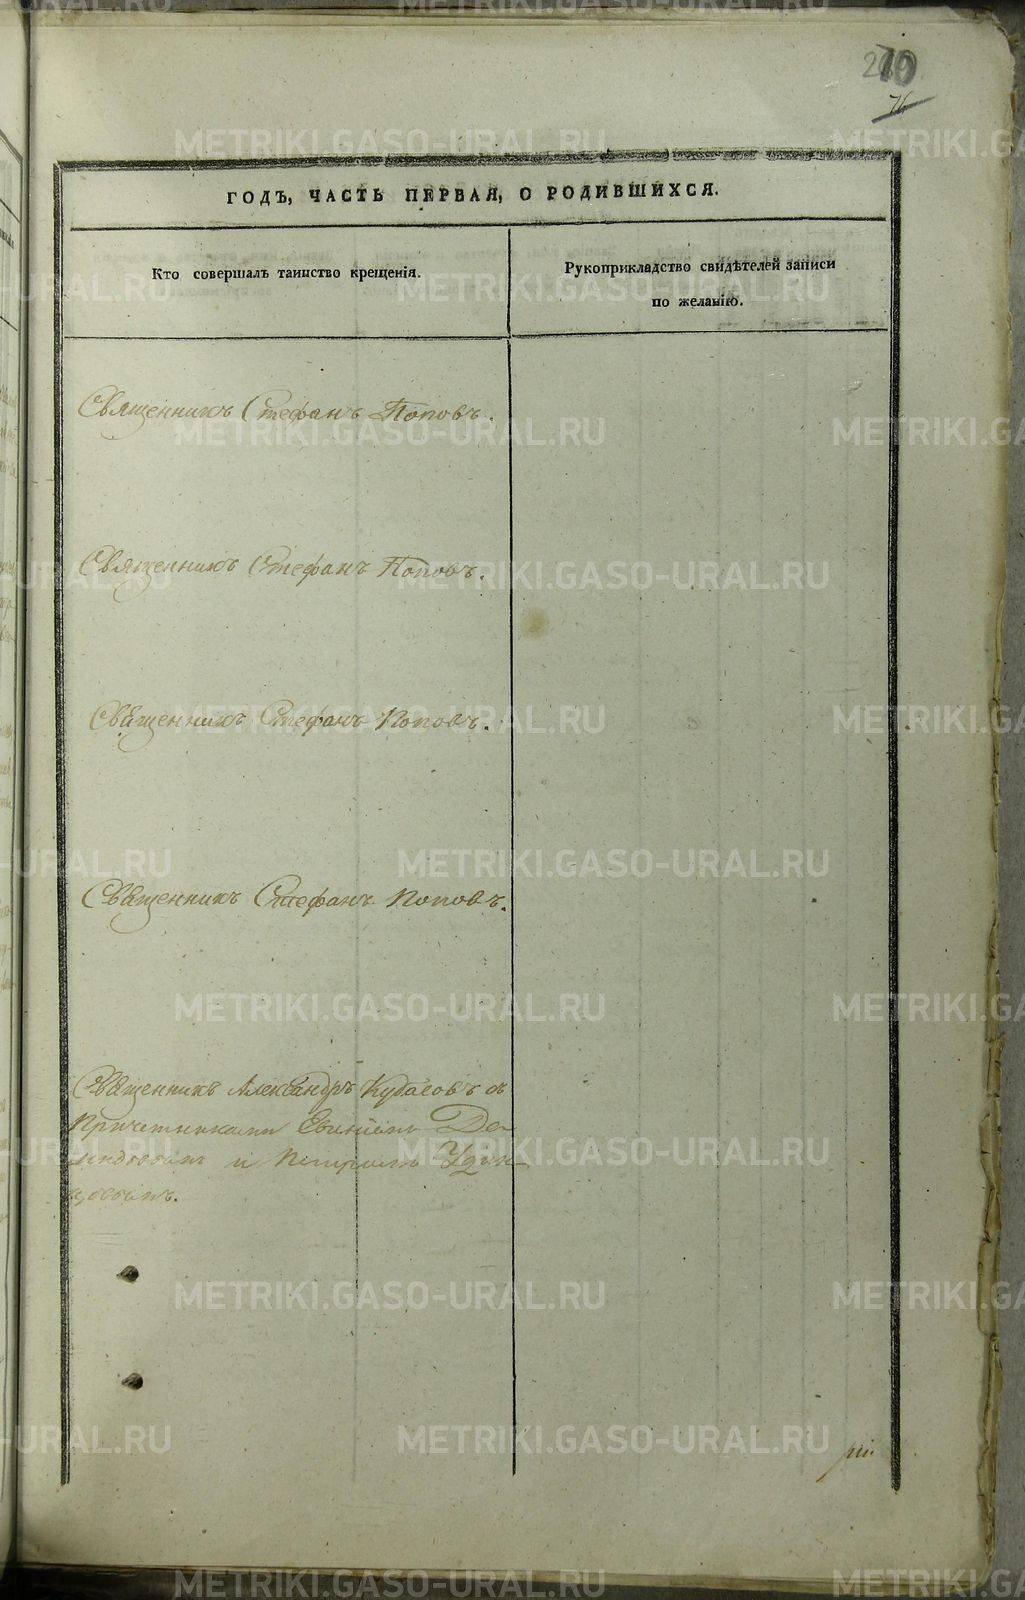 76
ГОДЪ, ЧАСТЬ ПЕРВАЯ, О РОДИВШИХСЯ.
Кто совершалъ таинство крещенія.
Рукоприкладство свидѣтелей записи
по желанію.
Священникъ Стефанъ Поповъ.
Священникъ Стефанъ Поповъ.
Священникъ Стефанъ Поповъ.
Священникъ Стефанъ Поповъ.
Священникъ Александръ Кубасовъ съ
Причетниками
и Петромъ Удин-
цовымъ.
METRIKI.GASO-URAL.RU